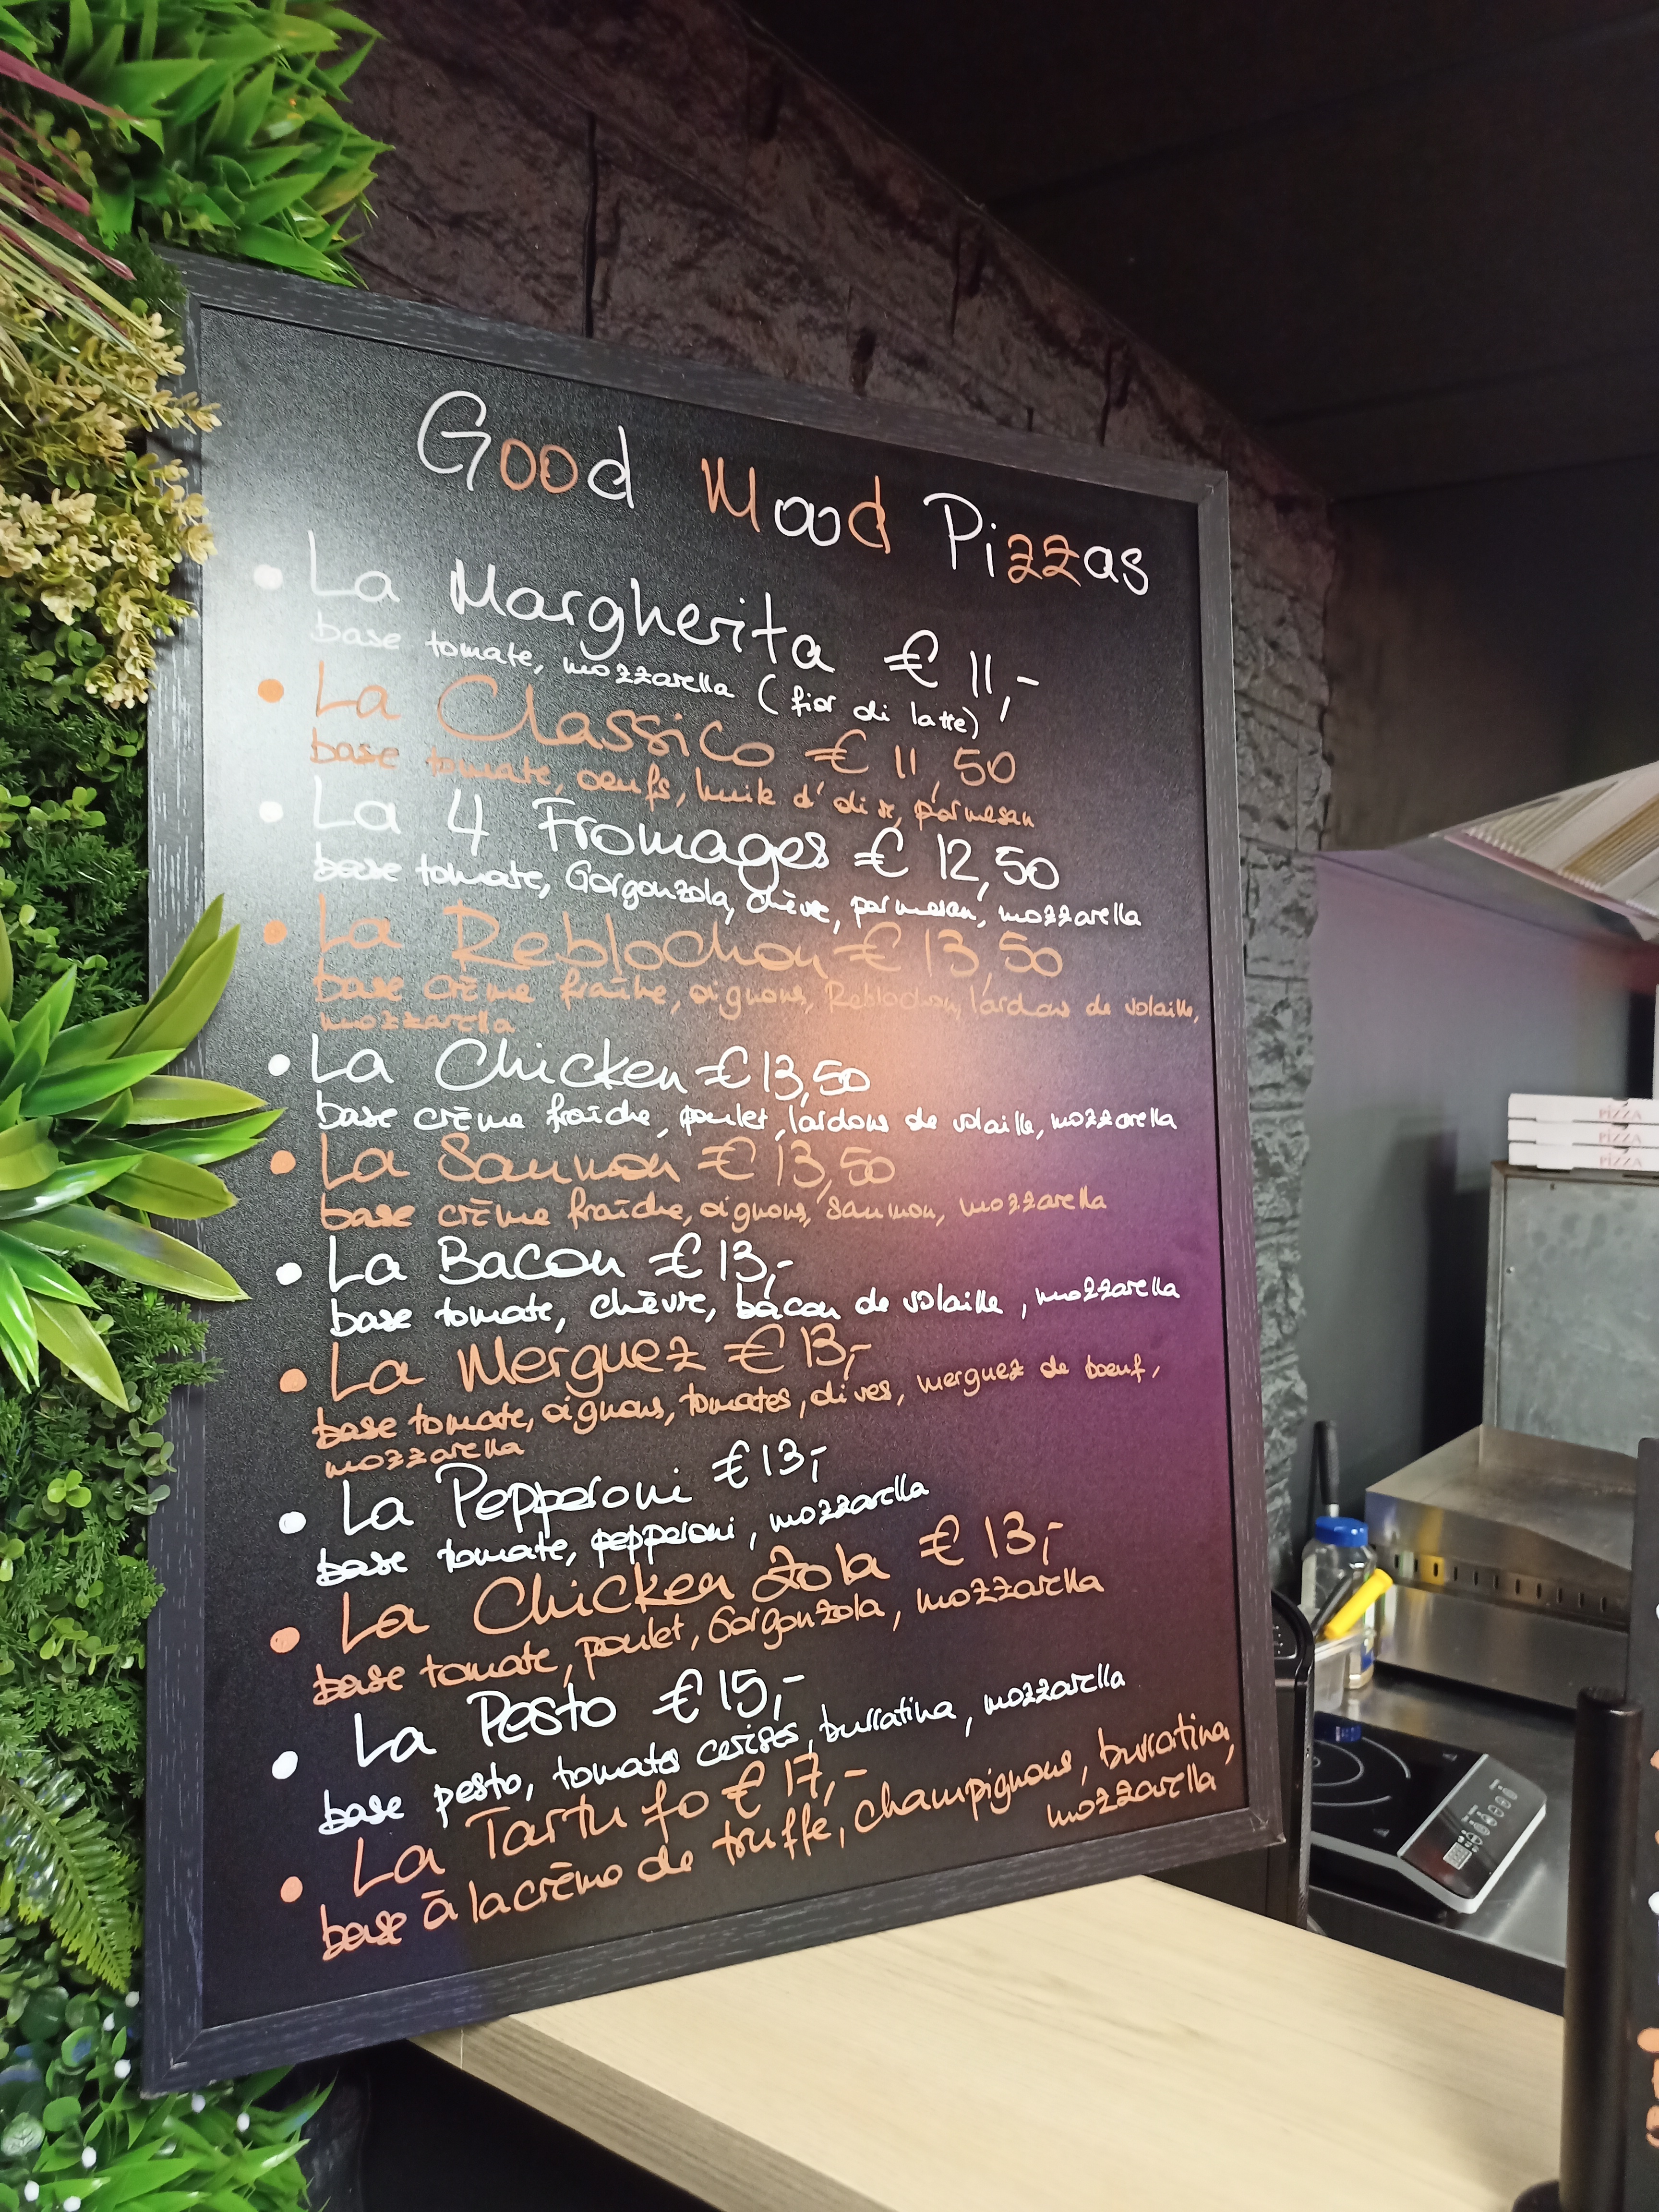 Good Mood Pizzas
• La Margherita € 11,-
base tomate, mozzarella (fior di latte)
• La Classico € 11,50
base tomate, oeufs, huile d'olive, parmesan
• La 4 Fromages € 12,50
base tomate, Gorgonzola, chèvre, parmesan, mozzarella
• La Reblochon € 13,50
base crème fraîche, oignons, Reblochon, lardons de volaille,
mozzarella
• La Chicken € 13,50
base crème fraîche, poulet, lardons de volaille, mozzarella
• La Saumon € 13,50
base crème fraîche, oignons, saumon, mozzarella
• La Bacon € 13,-
base tomate, chèvre, bacon de volaille, mozzarella
• La Merguez € 13,-
base tomate, oignons, tomates, olives, merguez de boeuf,
mozzarella
• La Pepperoni € 13,-
base tomate, pepperoni, mozzarella
• La Chicken Zola € 13,-
base tomate, poulet, Gorgonzola, mozzarella
• La Pesto € 15,-
base pesto, tomates cerises, burratina, mozzarella
• La Tartufo € 17,-
base à la crème de truffe, champignons, burratina,
mozzarella
PIZZA
PIZZA
PIZZA